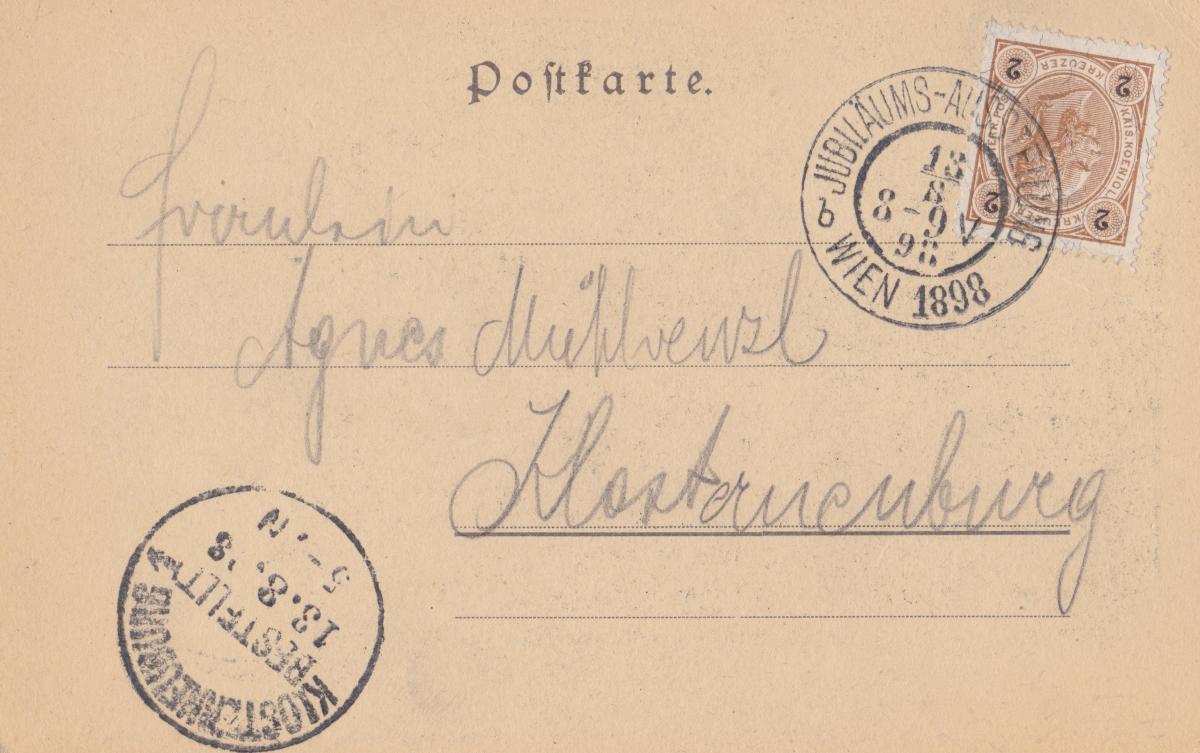 Postkarte.
JUBILÄUMS-AUSSTELLUNG
13
8
8-9V
98
b WIEN 1898
2 KREUZER 2
KAIS. KOENIGL.
2 2
Fräulein
Agnes Mühlvenzl
Klosterneuburg
KLOSTERNEUBURG 1
BESTELLT
13.8.98
5-.N